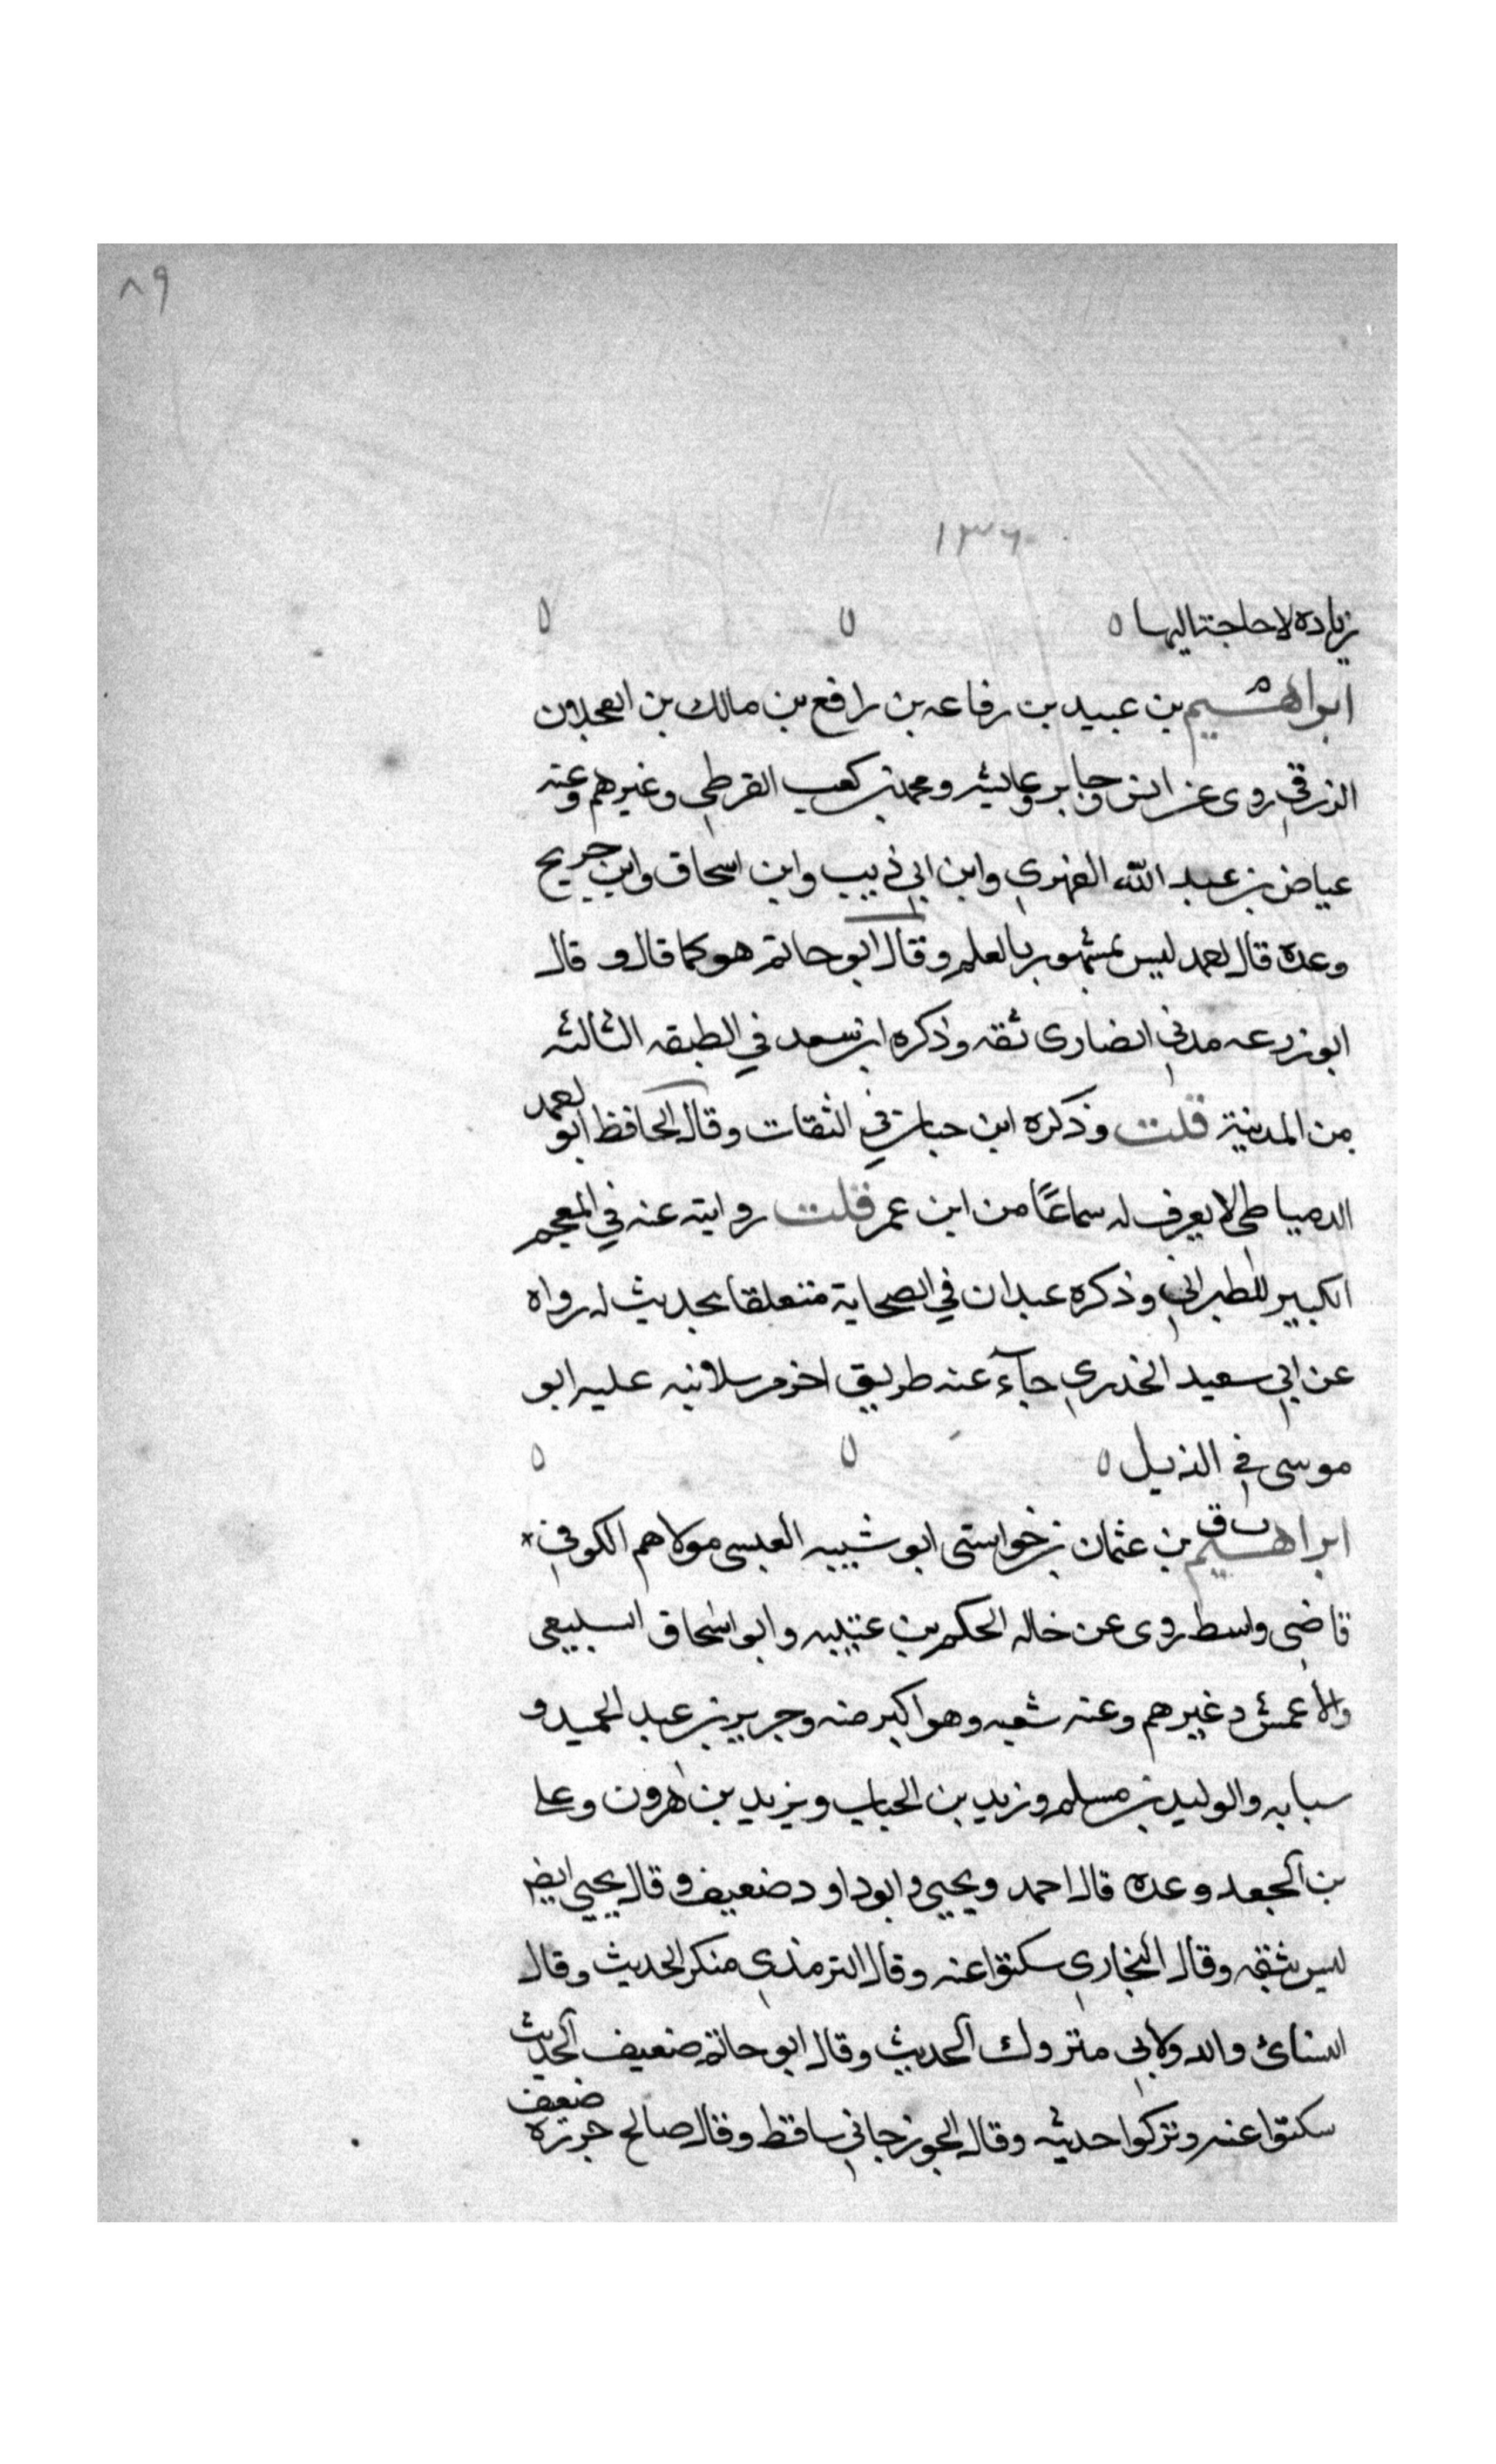 ٨٩
١٣٦
زيادة لا حاجة اليها ٥ ٥ ٥
ابراهيم بن عبيد بن رفاعه بن رافع بن مالك بن العجلان
الزرقي روى عن انس وجابر وعايشه ومحمد بن كعب القرظي وغيرهم وعنه
عياض بن عبد الله الفهري وابن ابي ذييب وابن اسحاق وابن جريج
وعدة قال احمد ليس بمشهور بالعلم وقال ابو حاتم هو كما قال و قال
ابو زرعه مدني انصارى ثقه وذكره ابن سعد في الطبقه الثالثه
من المدنية قلت وذكره ابن حبان في الثقات وقال الحافظ ابو احمد
الدمياطي لا يعرف له سماعًا من ابن عمر قلت روايته عنه في المعجم
الكبير للطبراني وذكره عبدان في الصحابة متعلقا بحديث له رواه
عن ابي سعيد الخدري جآء عنه طريق اخر مرسلا نبه عليه ابو
موسى في الذيل ٥ ٥ ٥
ابراهيم ت ق بن عثمان بن خواستى ابو شيبه العبسى مولاهم الكوفي *
قاضي واسط روى عن خاله الحكم بن عتيبه وابو اسحاق السبيعى
والاعمش وغيرهم وعنه شعبه وهو اكبر منه وجرير بن عبد الحميد و
سبابه والوليد بن مسلم وزيد بن الحباب ويزيد بن هرون وعلي
بن الجعد وعده قال احمد ويحيي وابو داود ضعيف وقال يحيي ايض
ليس بثقه وقال البخاري سكتوا عنه وقال الترمذي منكر الحديث وقال
النسائ والدولابي متروك الحديث وقال ابو حاتم ضعيف الحديث
سكتوا عنه وتركوا حديثه وقال الجوزجاني ساقط وقال صالح جزره ضعيف